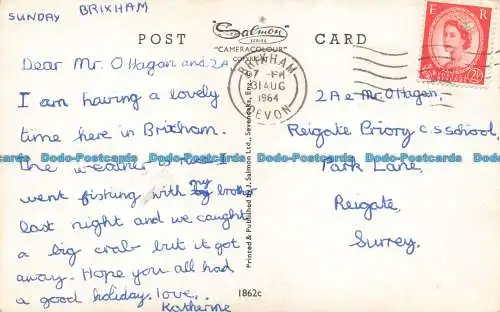 SUNDAY BRIXHAM
POST CARD
Salmon
SERIES
"CAMERACOLOUR"
BRIXHAM
31 AUG
1964
DEVON
E R
Dear Mr. O Hagan and 2A
I am having a lovely
time here in Brixham.
the weather
went fishing with my brother
last night and we caught
a big crab but it got
away. Hope you all had
a good holiday. love,
Katherine
2A e Mr. O Hagan,
Reigate Priory C.S. School,
Park Lane,
Reigate,
Surrey.
Printed & Published by J. Salmon Ltd., Sevenoaks, Eng.
1862c
Dodo-Postcards Dodo-Postcards Dodo-Postcards Dodo-Postcards Dodo-Postcards